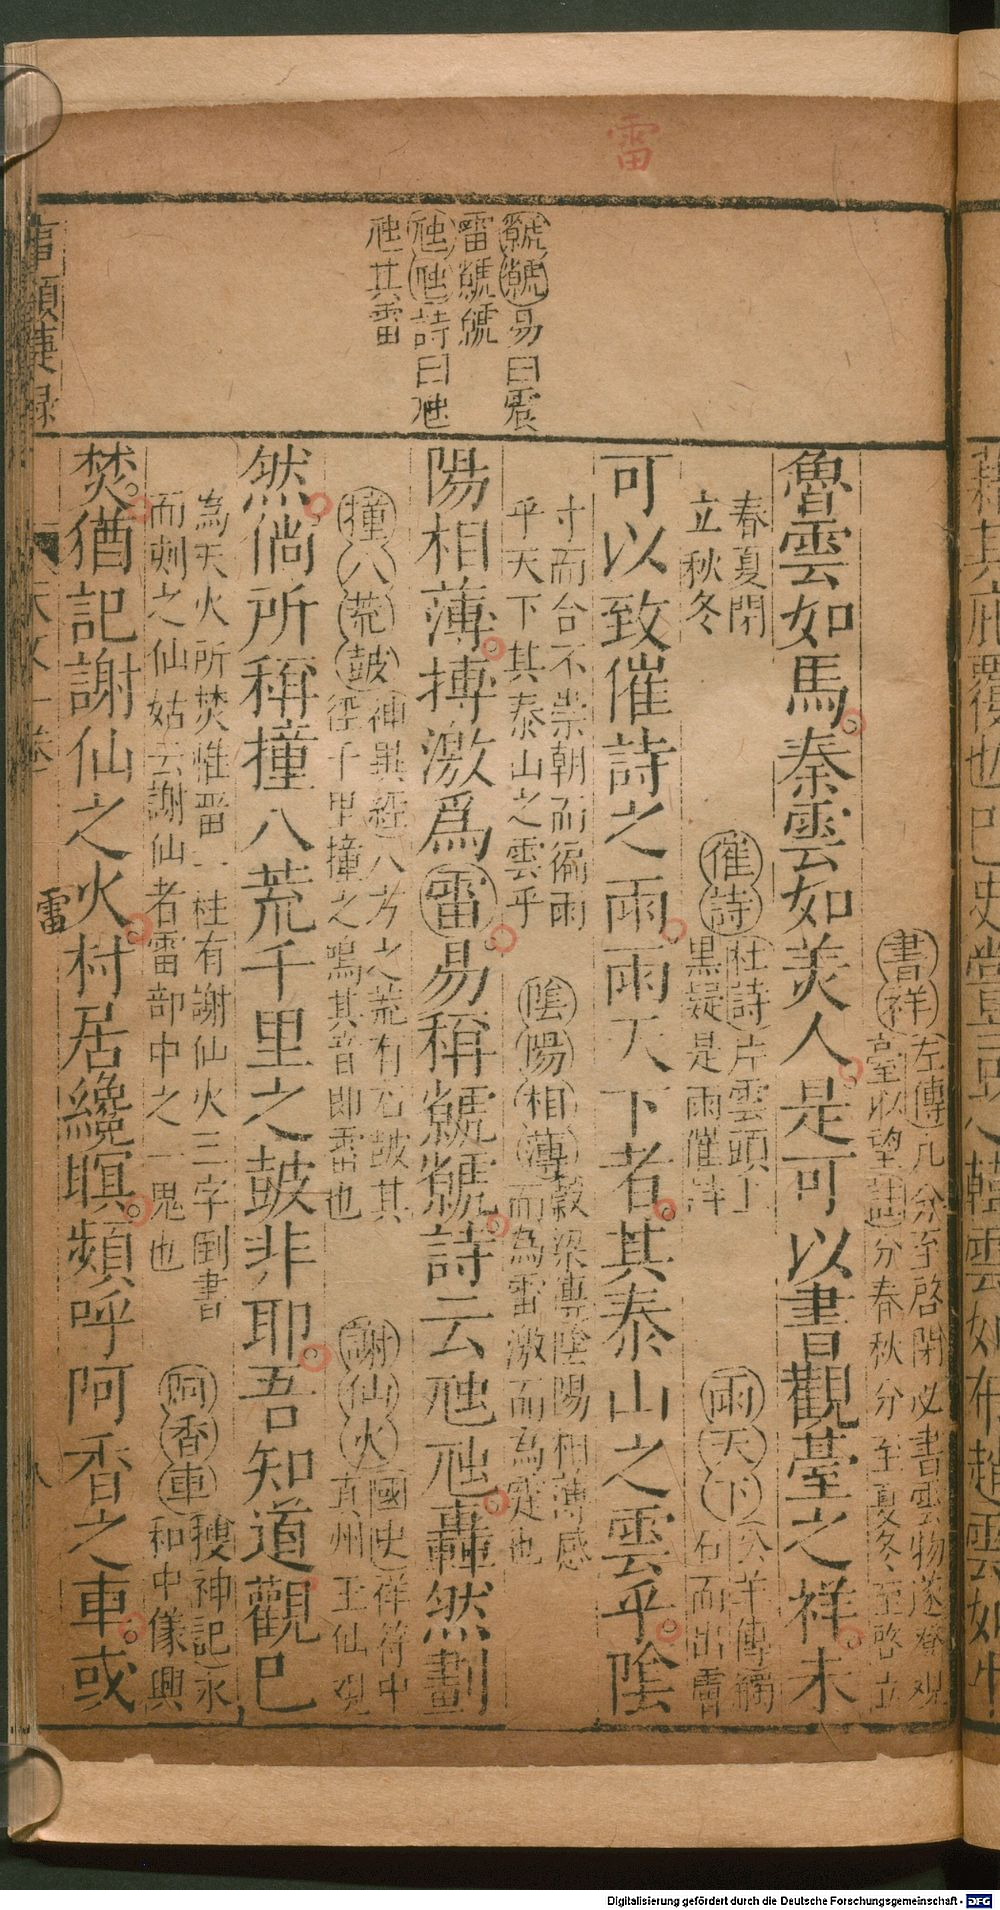 雷
虩虩易曰震
雷虩虩
虺虺詩曰虺
虺其雷
魯雲如馬秦雲如美人是可以書觀臺之祥未
書祥左傳凡分至啓閉必書雲物遂登观
臺以望註分春秋分至夏冬至啓立
春夏閉
立秋冬
可以致催詩之雨雨天下者其泰山之雲乎陰
催詩杜詩片雲頭上
黑疑是雨催詩
雨天下公羊傳觸
石而出膚
寸而合不崇朝而徧雨
乎天下其泰山之雲乎
陽相薄搏激爲雷易稱虩虩詩云虺虺轟然劃
陰陽相薄穀梁傳陰陽相薄感
而為雷激而為霆也
然倘所稱撞八荒千里之鼓非耶吾知道觀巳
撞八荒鼓神異經八方之荒有石鼓其
徑千里撞之鳴其音即雷也
謝仙火國史祥符中
州王仙观
為天火所焚惟畱一柱有謝仙火三字倒書
而刺之仙姑云謝仙者雷部中之一鬼也
焚猶記謝仙之火村居纔暝頻呼阿香之車或
阿香車搜神記永
和中儀興
事類捷録
天文一卷
雷
八
Digitalisierung gefördert durch die Deutsche Forschungsgemeinschaft - DFG